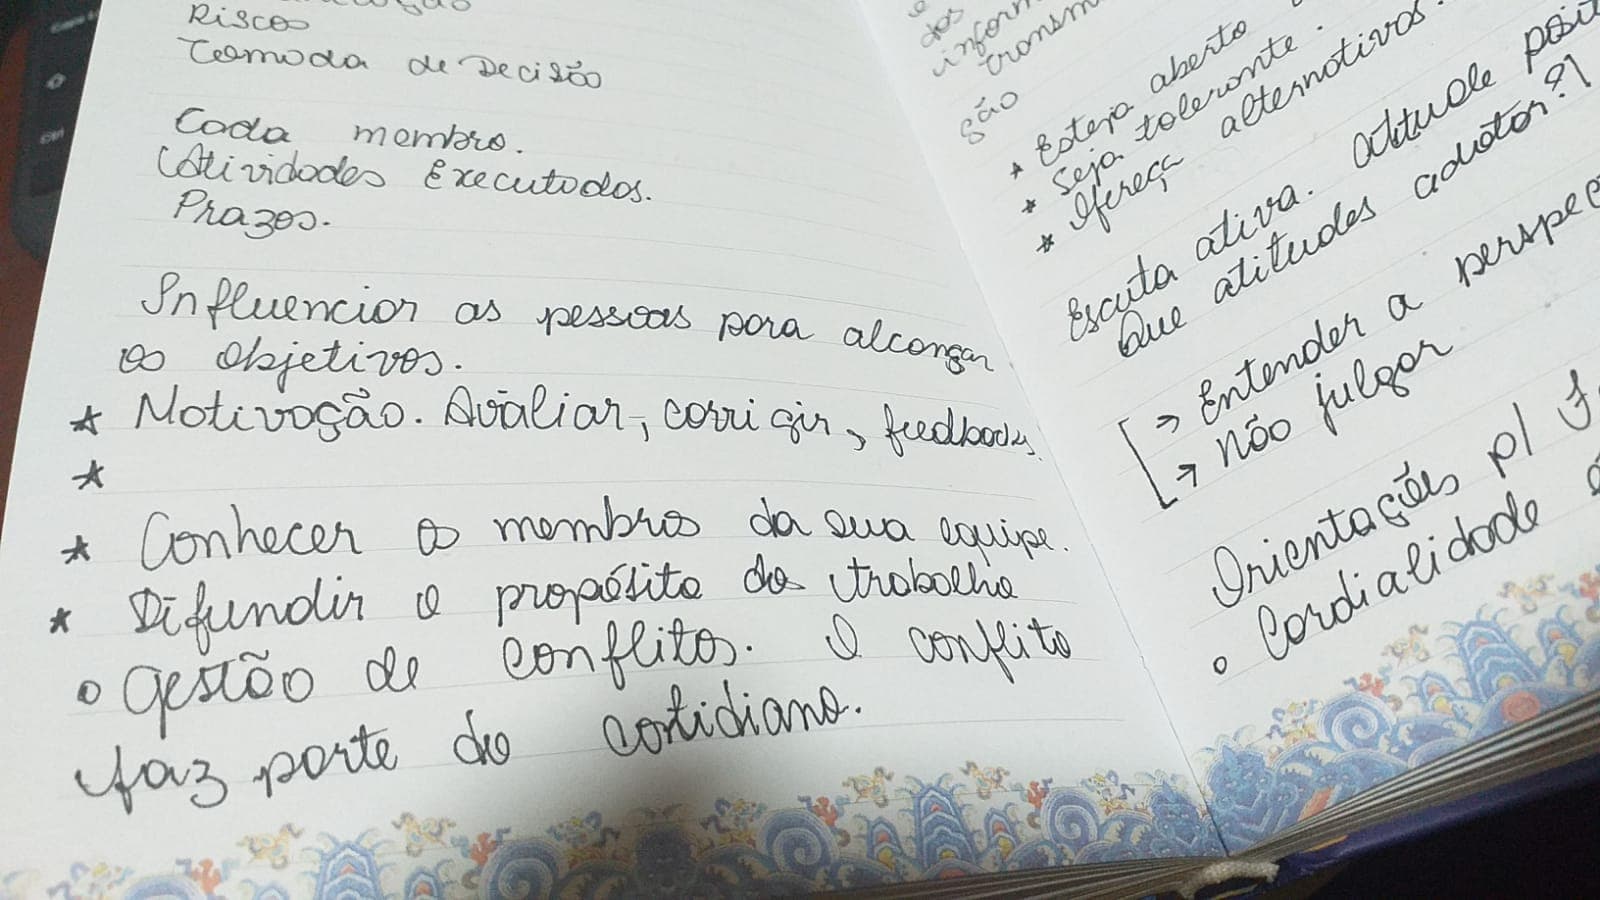 Riscos
Tomada de Decisão
Cada membro.
Atividades Executadas.
Prazos.
Influenciar as pessoas para alcançar
os objetivos.
★ Motivação. Avaliar, corrigir, feedback.
★
★ Conhecer os membros da sua equipe.
★ Difundir o propósito do trabalho
o Gestão de conflitos. O conflito
faz parte do contidiano.
dos
inform
transm
ção
★ Esteja aberto
★ Seja tolerante.
★ Ofereça alternativas.
Escuta ativa. atitude posit
Que atitudes adotar?
→ Entender a perspec
→ Não julgar
Orientações p/
o Cordialidade